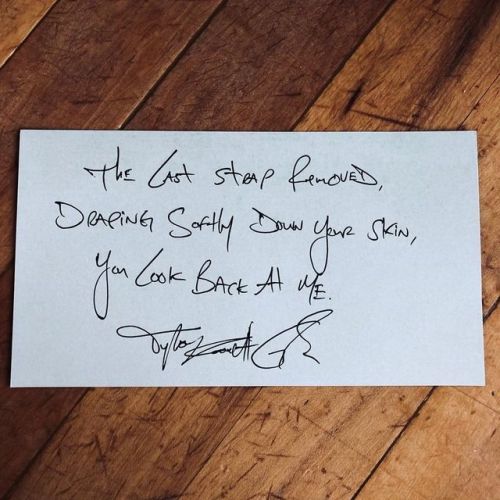 The Last Strap Removed,
Draping Softly Down Your Skin,
You Look Back At Me.
Tyler Knott G